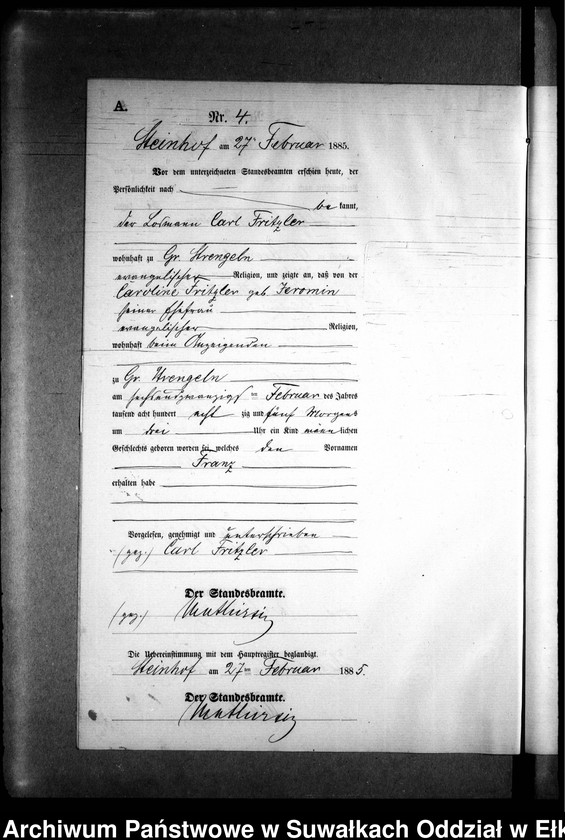 A.
Nr. 4.
Steinhof am 27ten Februar 1885.
Vor dem unterzeichneten Standesbeamten erschien heute, der
Persönlichkeit nach
be kannt,
der Losmann Carl Fritzler
wohnhaft zu Gr. Strengeln
evangelischer Religion, und zeigte an, daß von der
Caroline Fritzler geb Jeromin
seiner Ehefrau
evangelischer Religion,
wohnhaft beim Anzeigenden
zu Gr. Strengeln
am sechsundzwanzigsten Februar des Jahres
tausend acht hundert acht zig und fünf Morgens
um drei Uhr ein Kind männ lichen
Geschlechts geboren worden sei, welches den Vornamen
Franz
erhalten habe
Vorgelesen, genehmigt und unterschrieben
(gez.) Carl Fritzler
Der Standesbeamte.
(gez.)
Die Uebereinstimmung mit dem Hauptregister beglaubigt.
Steinhof am 27ten Februar 1885.
Der Standesbeamte.
Archiwum Państwowe w Suwałkach Oddział w Ełk